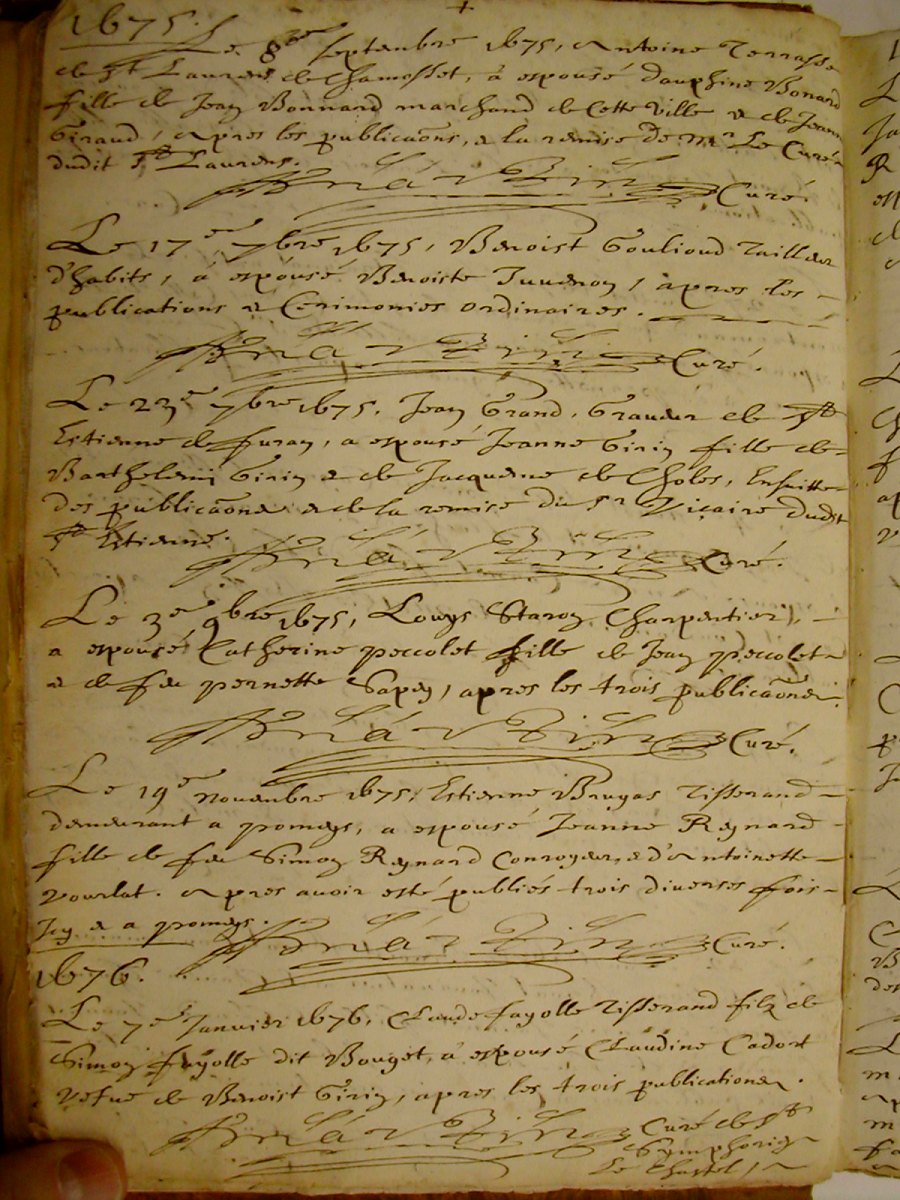 1675.
Le 8me septembre 1675, Antoine Terrasse
de St Laurens de Chamosset, a espousé Dauphine Bonard
fille de Jean Bonnard marchand de Cette ville & de Jeanne
Giraud, Apres les publicaõns, & la remise de Mr Le Curé
dudit St Laurens.
Curé.
Le 17e 7bre 1675, Benoist Goulioud Tailleur
d'habits, à espousé Benoiste Juuenon, apres les
publications & Cerimonies ordinaires.
Curé.
Le 23e 7bre 1675. Jean Grand, Graueur de St
Estienne de furan, a espousé Jeanne Girin fille de
Barthelemi Girin & de Jacqueme de Choles, Ensuitte
des publicaõns & de la remise du Sr Vicaire dudit
St Estienne.
Curé.
Le 3e 9bre 1675, Louys Staron Charpentier,
a espousé Catherine peccolet fille de Jean peccolet
& de feu pernette Sapey, apres les trois publicaõns.
Curé.
Le 19e Nouembre 1675, Estienne Brugas Tisserand
demeurant a pomeys, a espousé Jeanne Reynard
fille de feu Simon Reynard Conroyeur, & d'Antoinette
Vourlat. Apres auoir esté publiés trois diuerses fois
Icy & a pomeys.
Curé.
1676.
Le 7e Januier 1676, Claude fayolle Tisserand filz de
Simon fayolle dit Bouget, à espousé Claudine Cadort
vefue de Benoist Girin, apres les trois publications.
Curé de St
Symphorien
Le Chastel,